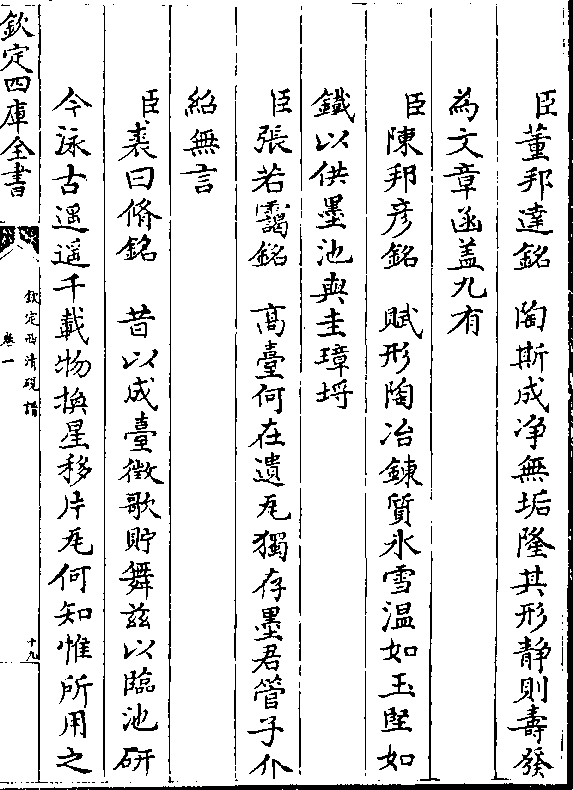 臣董邦達銘　陶斯成凈無垢隆其形静則壽發
為文章函盖九有
臣陳邦彦銘　賦形陶冶錬質氷雪温如玉堅如
鐵以供墨池與圭璋埒
臣張若靄銘　髙臺何在遺瓦獨存墨君管子介
紹無言
臣裘曰脩銘　昔以成臺徴歌貯舞兹以臨池研
今泳古遥遥千載物換星移片瓦何知惟所用之
欽定四庫全書
欽定西清硯譜
卷一
十九